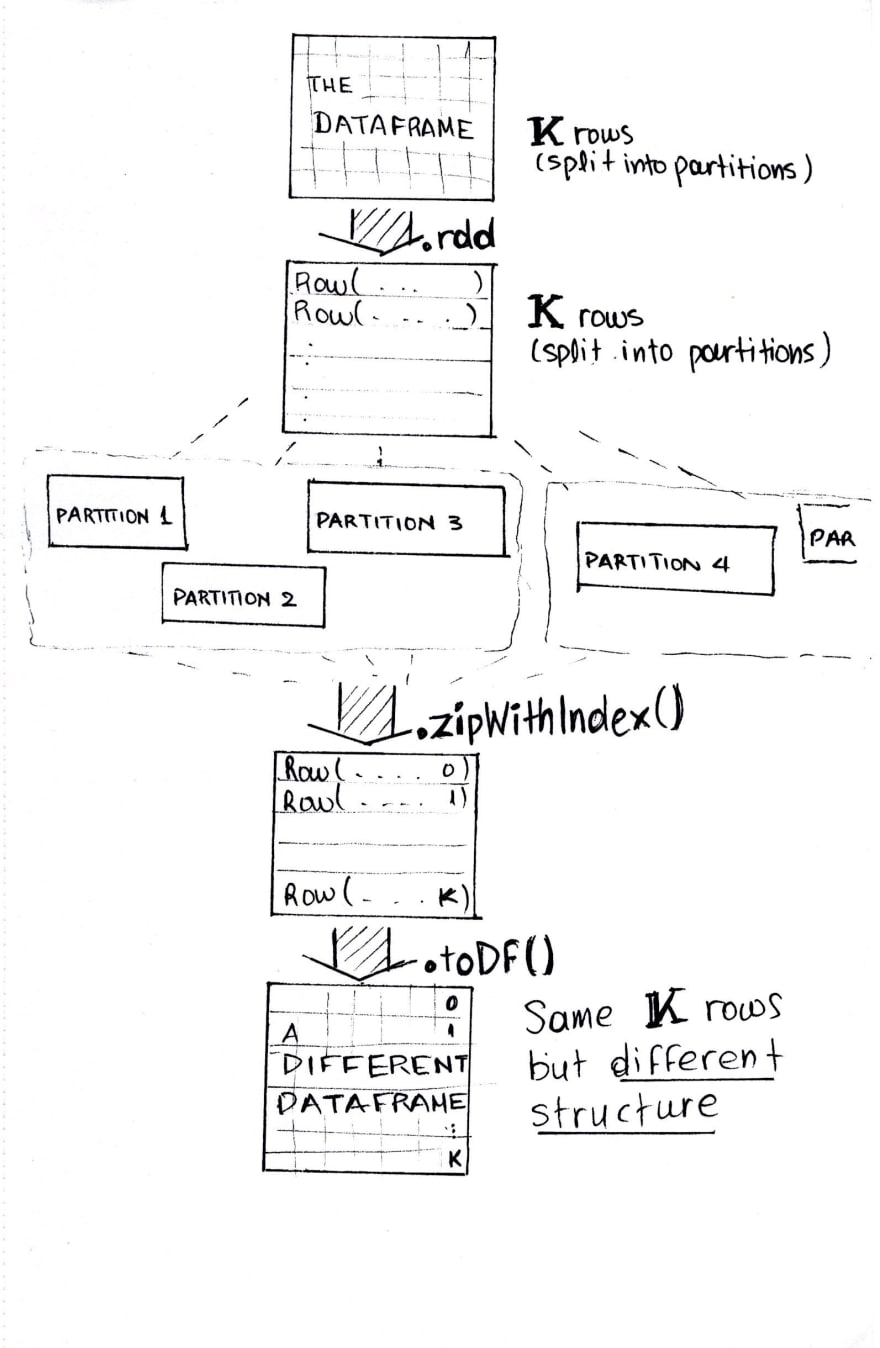 THE
DATAFRAME
K rows
(split into partitions)
.rdd
Row(... )
Row(. ...)
K rows
(split into partitions)
PARTITION 1
PARTITION 3
PARTITION 4
PAR
PARTITION 2
.zipWithIndex()
Row(.... 0)
Row(.... 1)
Row(... K)
.toDF()
0
A 1
DIFFERENT
DATAFRAME
:
K
Same K rows
but different
structure